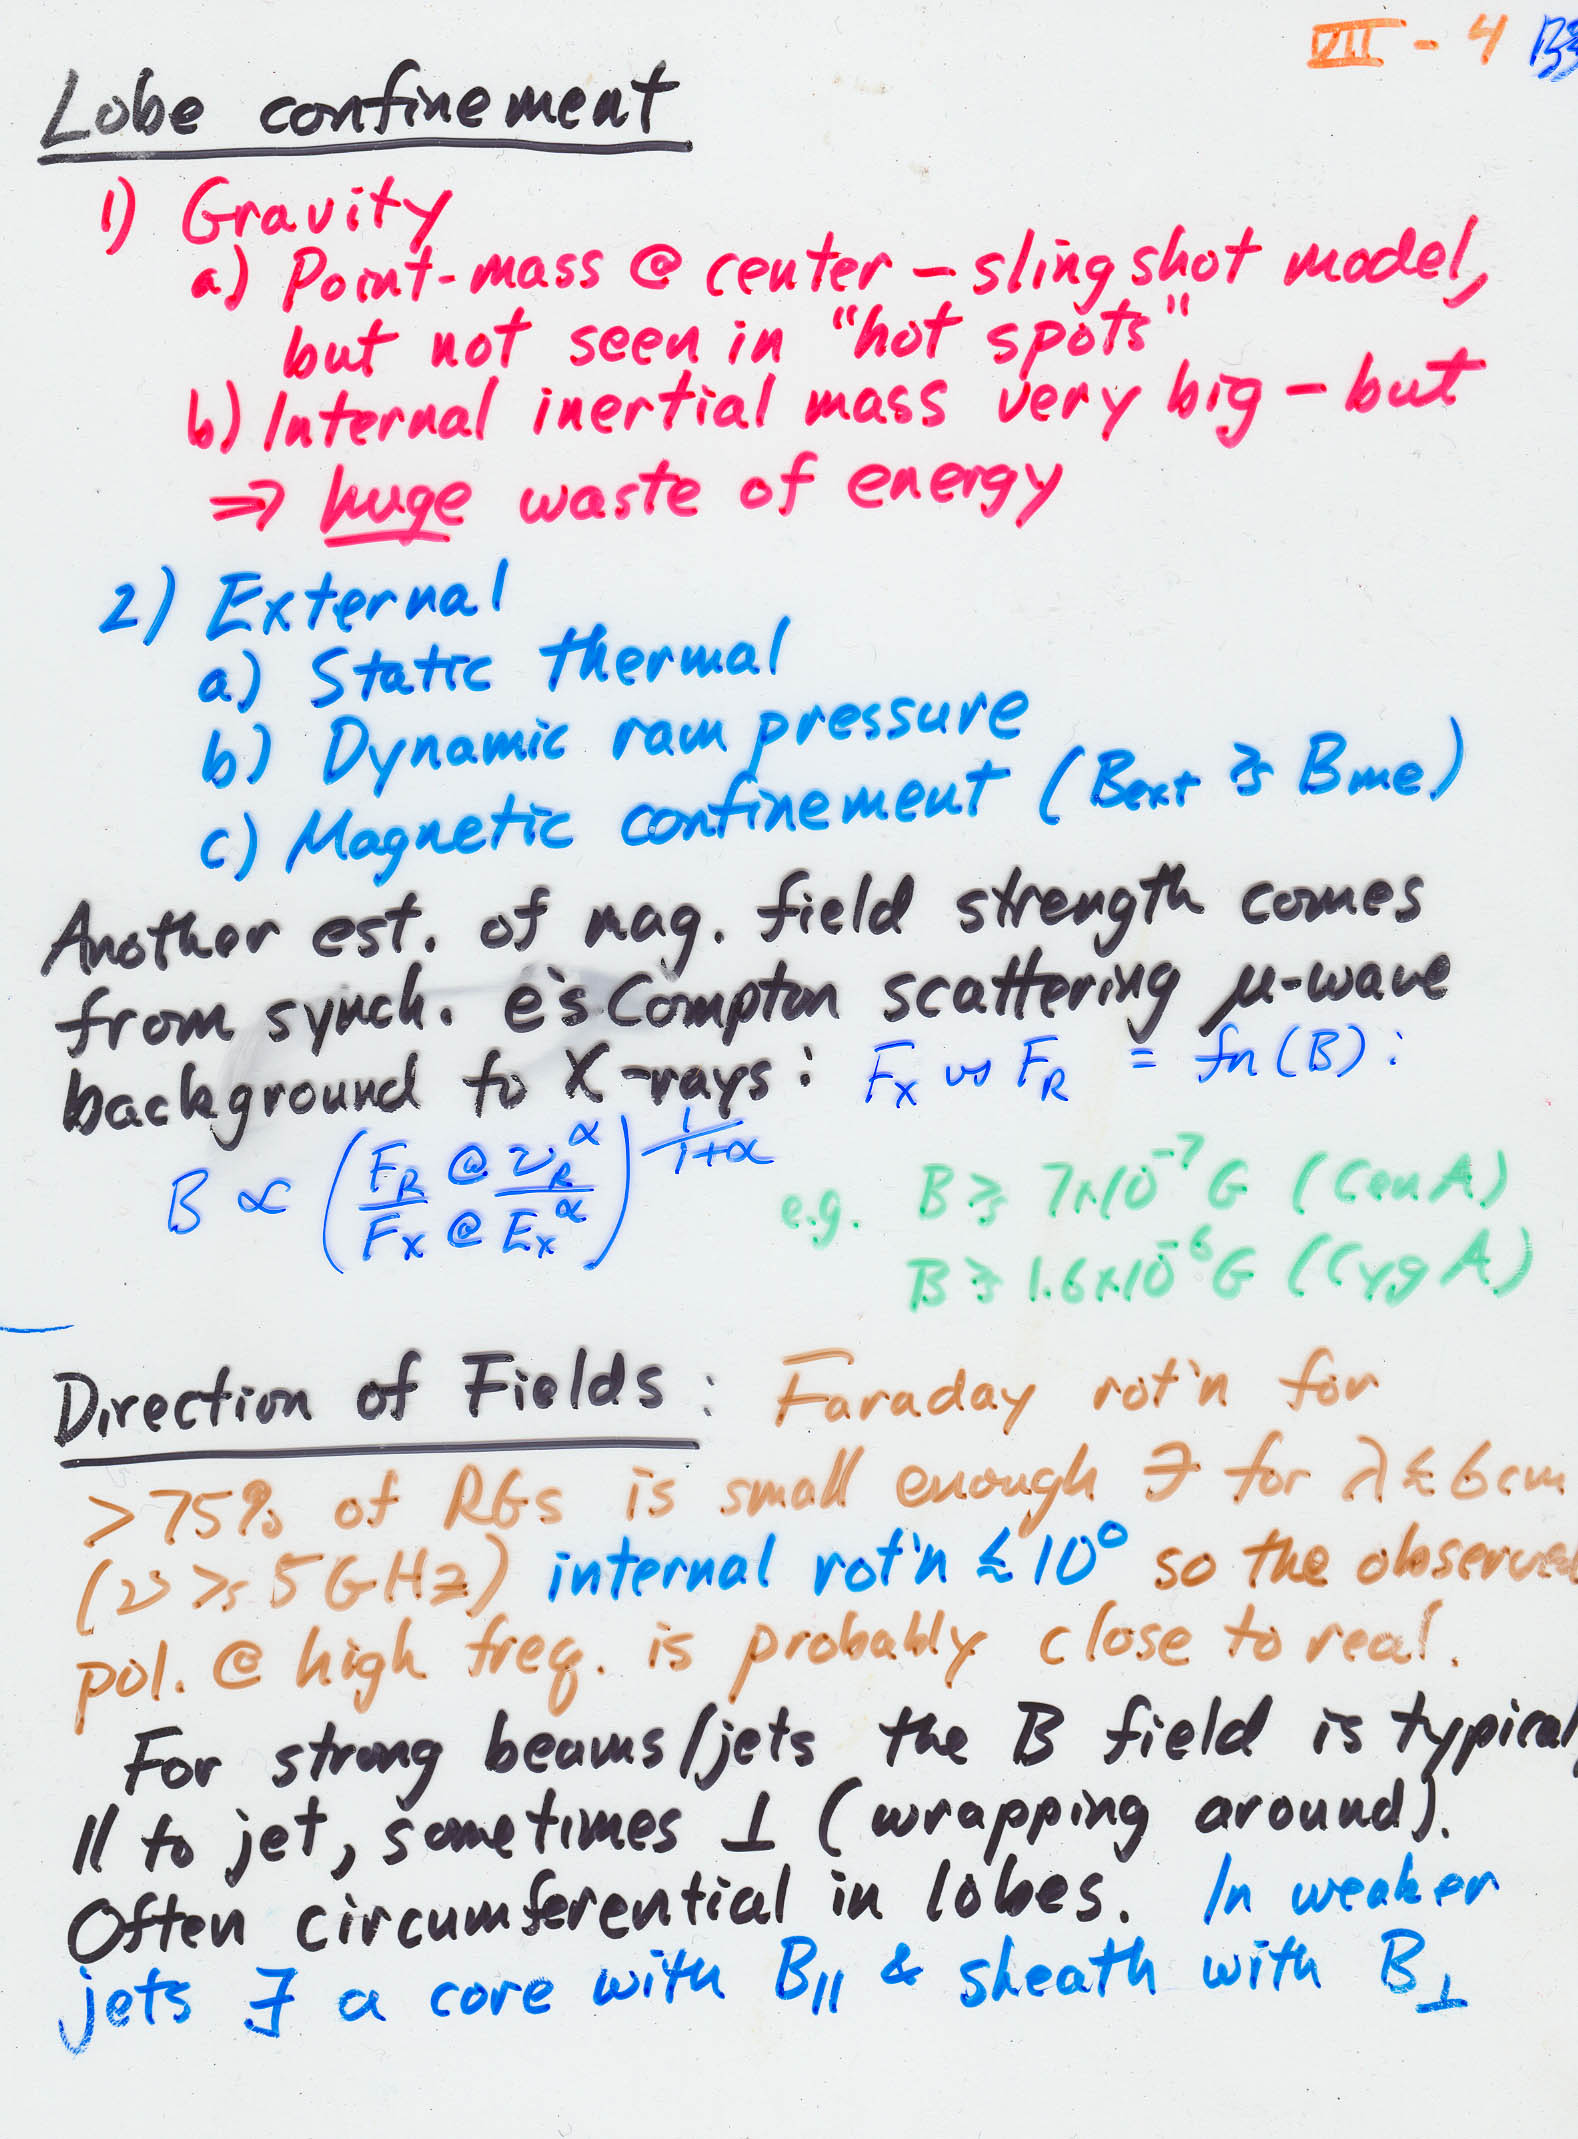 VII - 4
Lobe confinement
1) Gravity
a) Point-mass @ center – slingshot model,
but not seen in "hot spots"
b) Internal inertial mass very big – but
⇒ huge waste of energy
2) External
a) Static thermal
b) Dynamic ram pressure
c) Magnetic confinement (Bext ≳ Bme)
Another est. of mag. field strength comes
from synch. e's Compton scattering μ-wave
background to X-rays: Fx vs FR = fn(B):
B ∝ (FR @ νR^α / Fx @ Ex^α)^1/(1+α)
e.g. B ≳ 7×10^-7 G (Cen A)
B ≳ 1.6×10^-6 G (Cyg A)
Direction of Fields: Faraday rot'n for
>75% of RGs is small enough ∋ for λ ≲ 6cm
(ν ≳ 5 GHz) internal rot'n ≲ 10° so the observed
pol. @ high freq. is probably close to real.
For strong beams/jets the B field is typical
|| to jet, sometimes ⊥ (wrapping around).
Often circumferential in lobes. In weaker
jets ∃ a core with B|| & sheath with B⊥